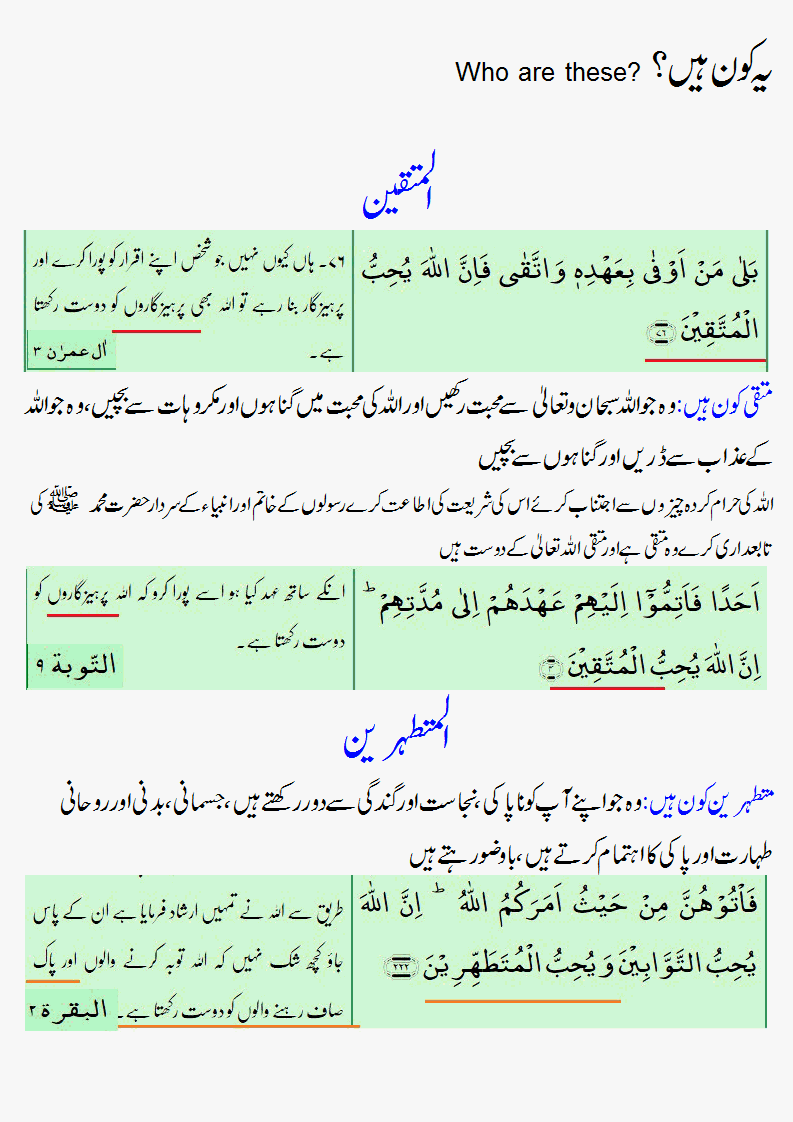 یہ کون ہیں؟ Who are these?
المتقین
بَلٰى مَنْ اَوْفٰى بِعَهْدِهٖ وَاتَّقٰى فَاِنَّ اللّٰهَ يُحِبُّ
الْمُتَّقِيْنَ ﴿۷۶﴾
۷۶۔ ہاں کیوں نہیں جو شخص اپنے اقرار کو پورا کرے اور
پرہیزگار بنا رہے تو اللہ بھی پرہیزگاروں کو دوست رکھتا
ہے۔
اٰل عمرٰن ۳
متقی کون ہیں: وہ جو اللہ سبحان وتعالیٰ سے محبت رکھیں اور اللہ کی محبت میں گناہوں اور مکروہات سے بچیں، وہ جو اللہ
کے عذاب سے ڈریں اور گناہوں سے بچیں
اللہ کی حرام کردہ چیزوں سے اجتناب کرئے اس کی شریعت کی اطاعت کرے رسولوں کے خاتم اور انبیاء کے سردار حضرت محمد ﷺ کی
تابعداری کرے وہ متقی ہے اور متقی اللہ تعالیٰ کے دوست ہیں
اَحَدًا فَاَتِمُّوْٓا اِلَيْهِمْ عَهْدَهُمْ اِلٰى مُدَّتِهِمْ ؕ
اِنَّ اللّٰهَ يُحِبُّ الْمُتَّقِيْنَ ﴿۴﴾
انکے ساتھ عہد کیا ہو اسے پورا کرو کہ اللہ پرہیزگاروں کو
دوست رکھتا ہے۔
التّوبة ۹
المتطہرین
متطہرین کون ہیں: وہ جو اپنے آپ کو ناپاکی، نجاست اور گندگی سے دور رکھتے ہیں، جسمانی، بدنی اور روحانی
طہارت اور پاکی کا اہتمام کرتے ہیں، باوضو رہتے ہیں
فَاْتُوْهُنَّ مِنْ حَيْثُ اَمَرَكُمُ اللّٰهُ ؕ اِنَّ اللّٰهَ
يُحِبُّ التَّوَّابِيْنَ وَيُحِبُّ الْمُتَطَهِّرِيْنَ ﴿۲۲۲﴾
طریق سے اللہ نے تمہیں ارشاد فرمایا ہے ان کے پاس
جاؤ کچھ شک نہیں کہ اللہ توبہ کرنے والوں اور پاک
صاف رہنے والوں کو دوست رکھتا ہے۔
البقرة ۲